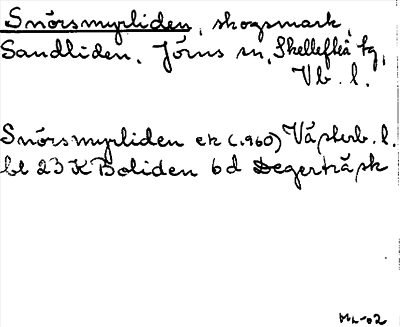 Snörsmyrliden, skogsmark,
Sandliden, Jörns sn, Skellefteå tg,
Vb. l.
Snörsmyrliden ek (1960) Västerb. l.
bl 23 K Boliden 6d Degerträsk
ML-02